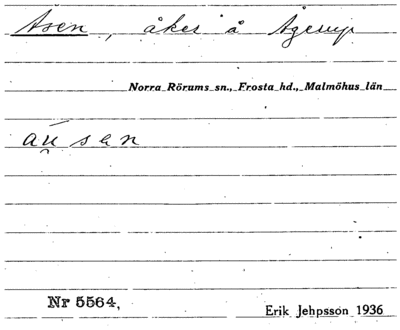 Åsen, åker å Ågerup
Norra Rörums sn., Frosta hd., Malmöhus län
au̯sen
Nr 5564,
Erik Jehpsson 1936